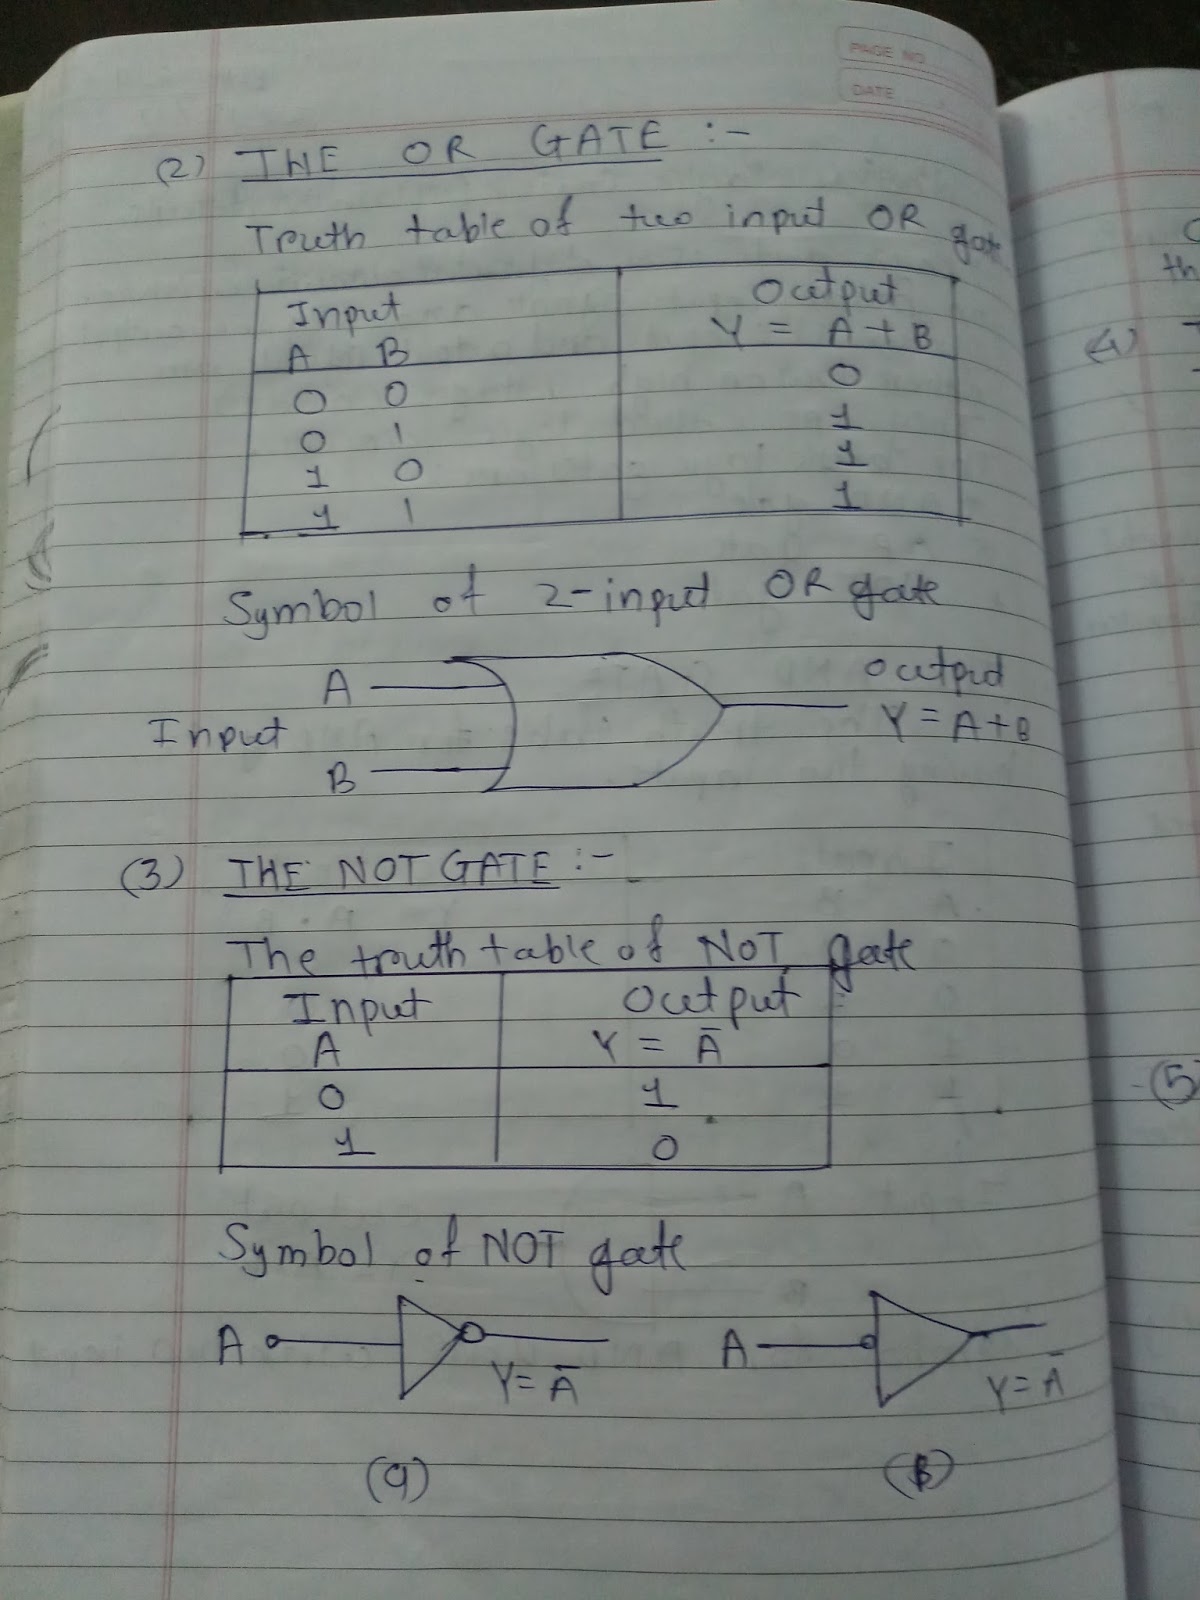 PAGE NO
DATE
(2) THE OR GATE :-
Truth table of two input OR gate
Input Output
A B Y = A + B
0 0 0
0 1 1
1 0 1
1 1 1
Symbol of 2-input OR gate
A Output
Input Y = A+B
B
(3) THE NOT GATE :-
The truth table of NOT gate
Input Output
A Y = Ā
0 1
1 0
Symbol of NOT gate
A Y = Ā A Y = Ā
(a) (B)
th
(4)
(5)